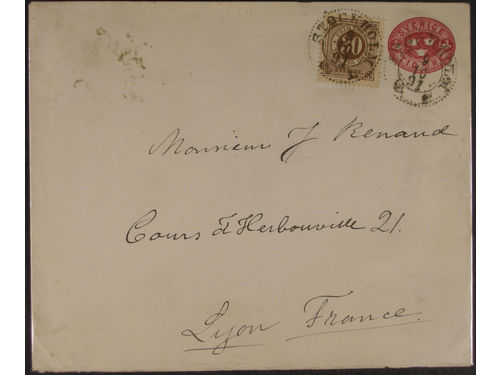 STOCKHOLM
30
SVERIGE
Monsieur J Renaud
Cours d'Herbouville 21.
Lyon France.